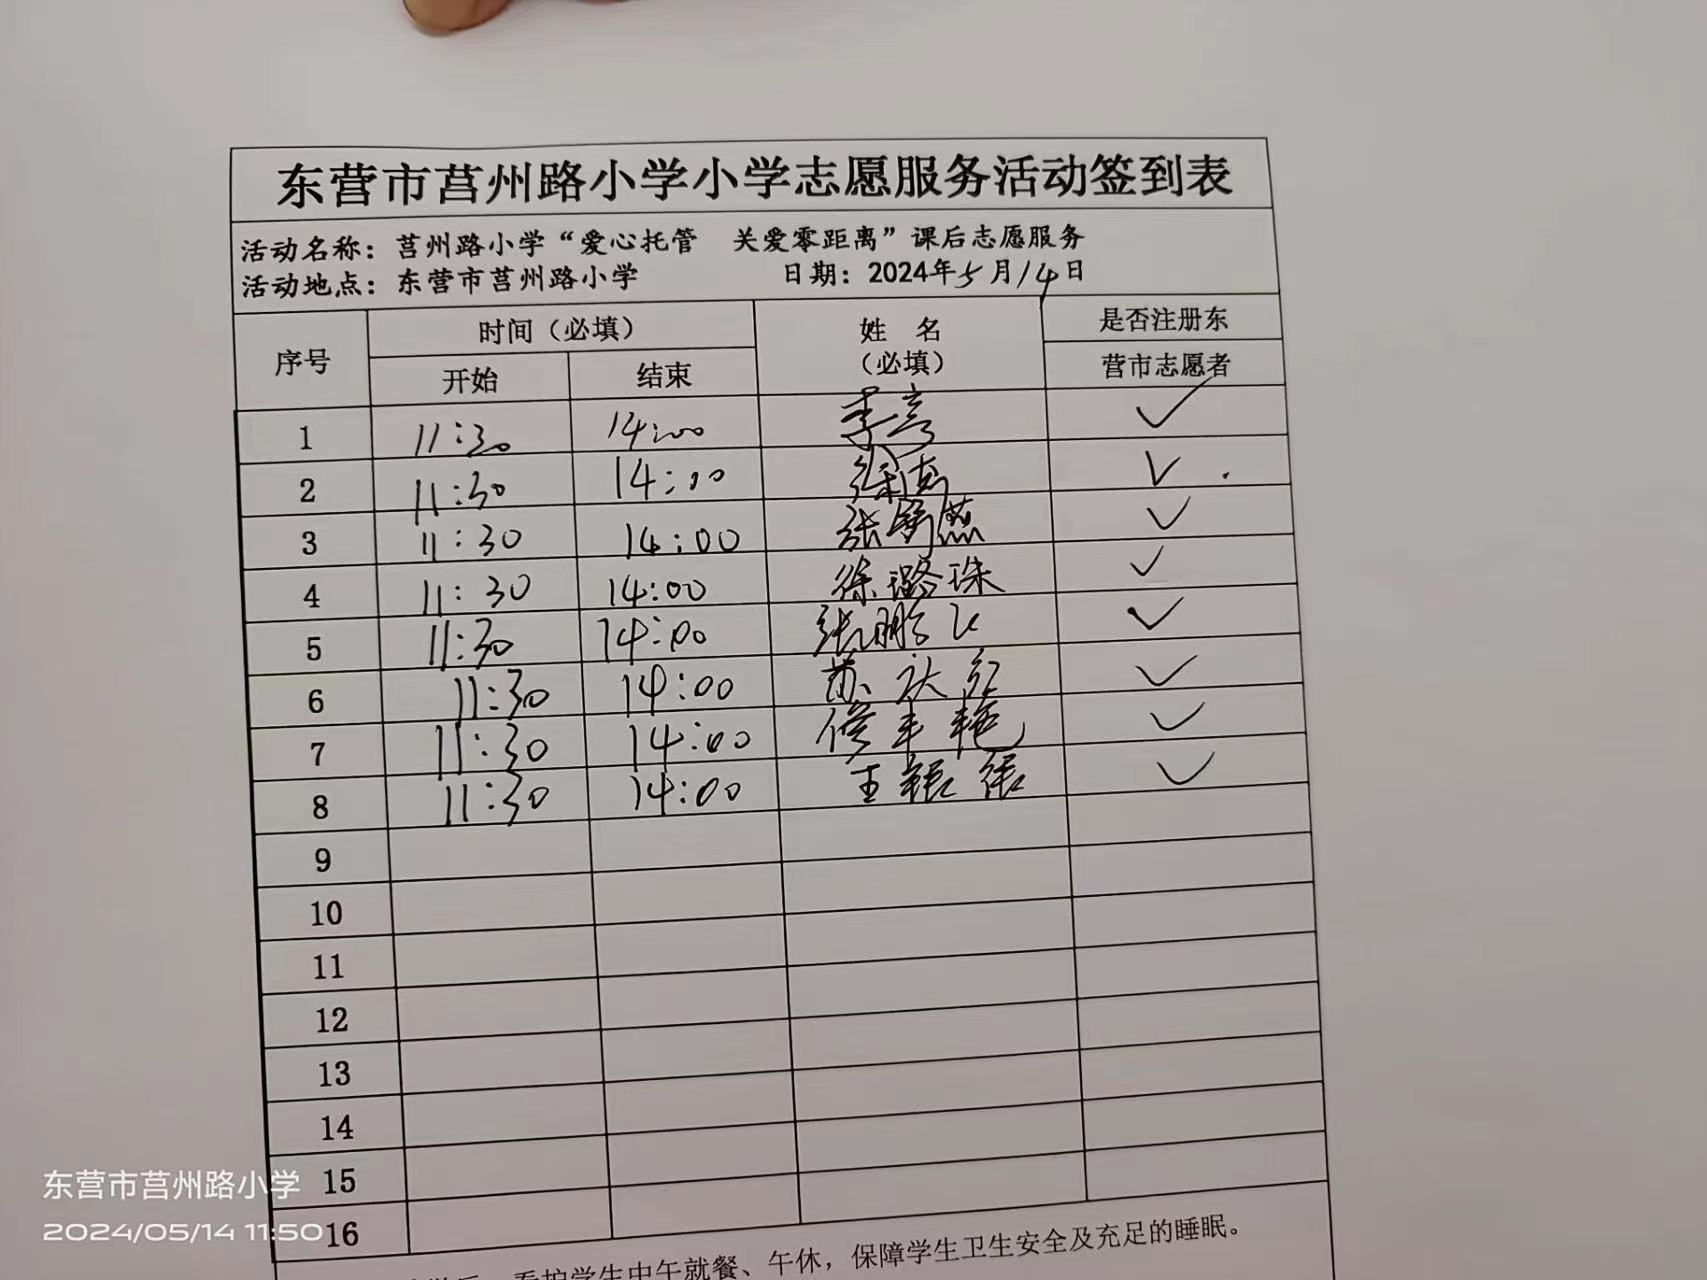 东营市莒州路小学小学志愿服务活动签到表
活动名称：莒州路小学“爱心托管 关爱零距离”课后志愿服务
活动地点：东营市莒州路小学 日期：2024年5月14日
序号 时间（必填） 姓 名（必填） 是否注册东营市志愿者
开始 结束
1 11:30 14:00 ✓
2 11:30 14:00 ✓
3 11:30 14:00 ✓
4 11:30 14:00 徐璐珠 ✓
5 11:30 14:00 张鹏飞 ✓
6 11:30 14:00 苏 红 ✓
7 11:30 14:00 修丰艳 ✓
8 11:30 14:00 王 ✓
9
10
11
12
13
14
15
16
看护学生中午就餐、午休，保障学生卫生安全及充足的睡眠。
东营市莒州路小学
2024/05/14 11:50